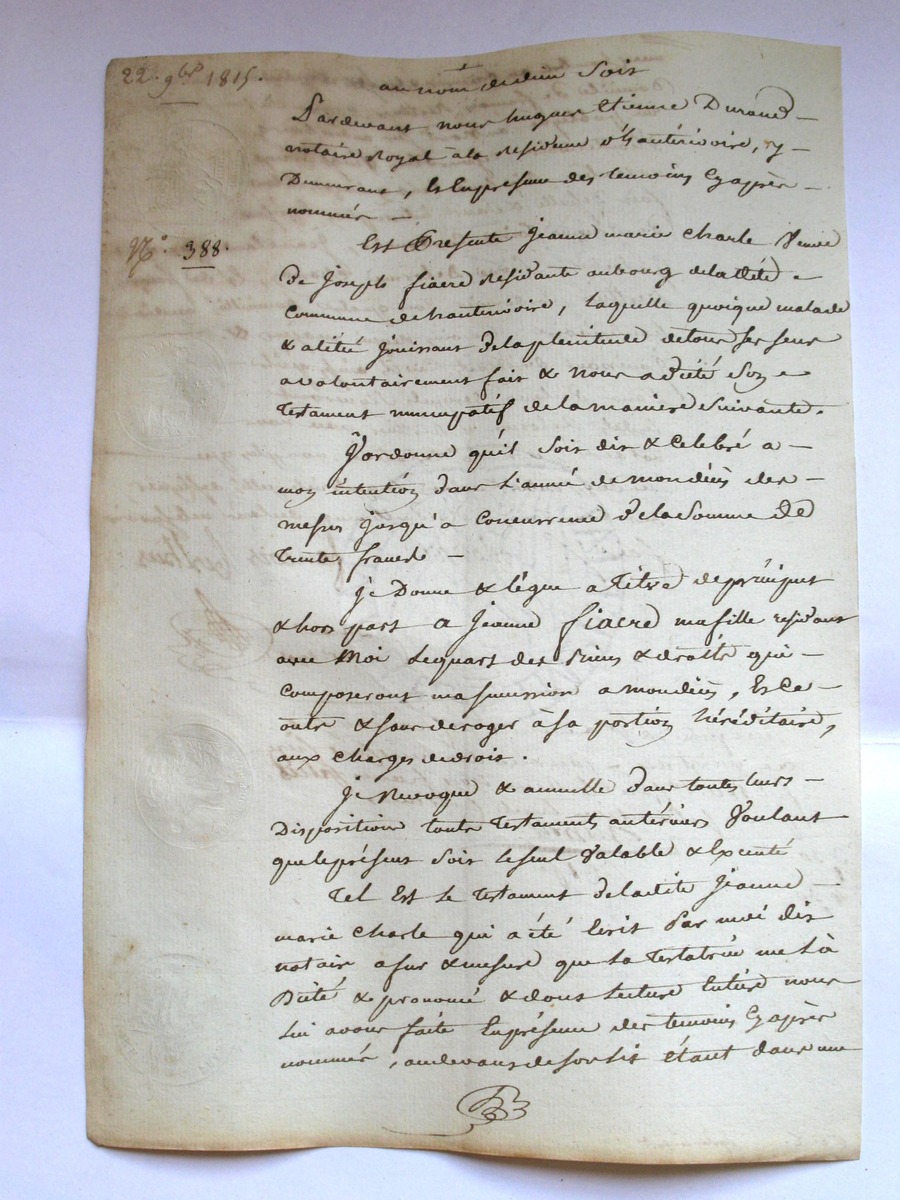 22. 9bre 1815.
au nom de dieu soit
Pardevant nous hugues Etienne Durand
notaire Royal à la Residence d'hauterivoire, y
Demeurant, Et En presence des temoins Cy après
nommés
N.° 388.
Est Presente jeanne marie Charle Veuve
De joseph fiacre residante au bourg de la dite
Commune de hauterivoire, laquelle quoique malade
& alitée jouissant de la plenitude de tous ses sens
a volontairement fait & nous a dicté son
Testament nuncupatif de la maniere suivante.
J'ordonne qu'il soit dit & Celebré a
mon intention dans L'année de mon décès des
messes jusqu'a Concurrence de la somme de
Trente francs
je Donne & lègue a Titre de préciput
& hors part a jeanne fiacre ma fille residant
avec Moi Le quart des biens & droits qui
Composeront ma succession a mon décès, Et Ce
outre & sans deroger à sa portion héréditaire,
aux Charges de droit.
je Revoque & annulle dans toutes leurs
Dispositions touts Testaments antérieurs Voulant
que le présent soit le seul Valable & Executé
Tel Est Le Testament de la dite jeanne
marie Charle qui a été Ecrit Par moi dit
notaire a fur & mesure que La Testatrice me L'a
Dicté & prononcé & dont Lecture Entière nous
Lui avons faite En présence des temoins Cy après
nommés, au devant de son lit étant dans une